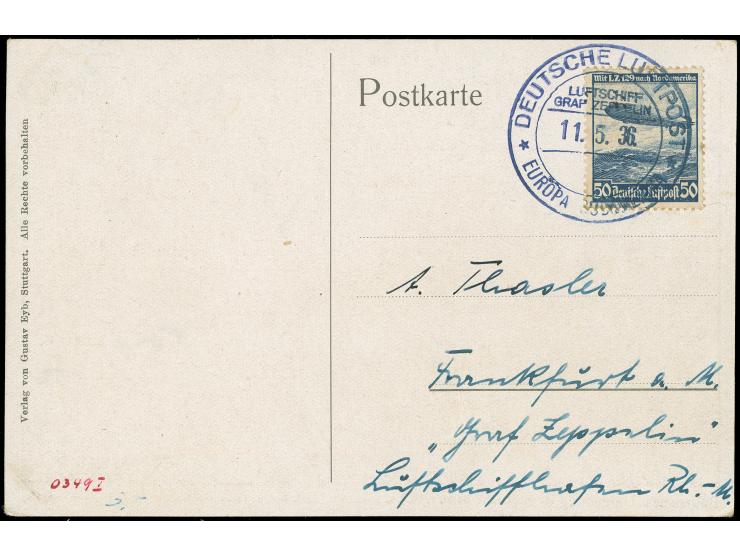 Verlag von Gustav Eyb, Stuttgart. Alle Rechte vorbehalten
Postkarte
DEUTSCHE LUFTPOST
LUFTSCHIFF
GRAF ZEPPELIN
11.5.36.
EUROPA
Mit L.Z. 129 nach Nordamerika
50 Deutsche Luftpost 50
A. Thasler
Frankfurt a. M.
„Graf Zeppelin"
Luftschiffhafen Rh.-M.
0349I
3.-